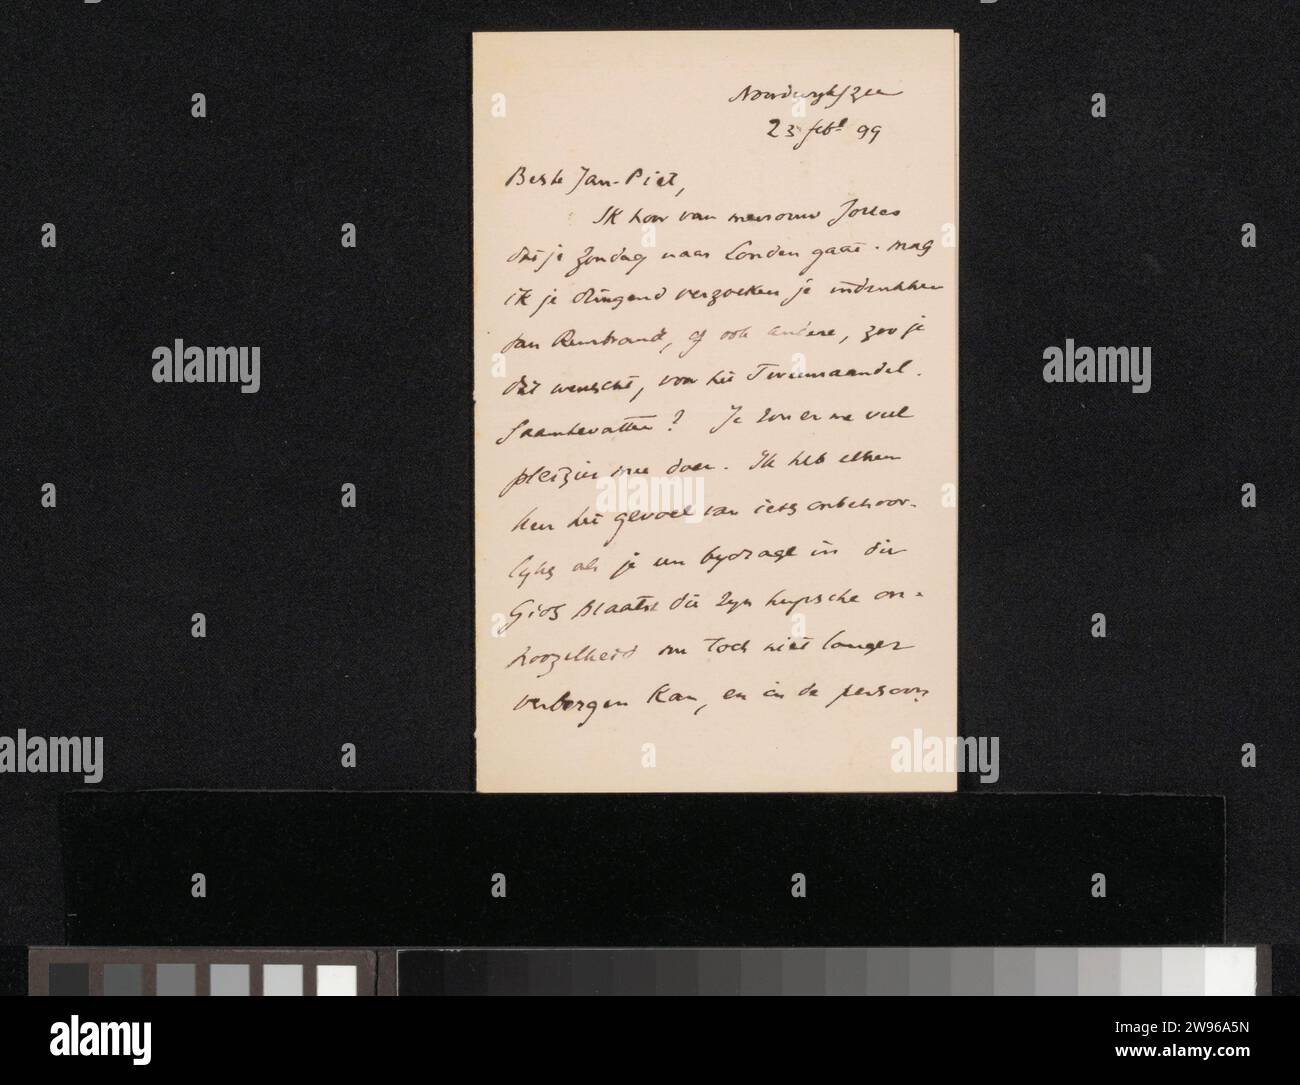 Noordwyk/zee
23 feb. 99
Beste Jan-Piet,
Ik hoor van mevrouw Jolles
dat je Zondag naar Londen gaat. mag
ik je dringend verzoeken je indrukken
van Rembrandt, of ook andere, zoo je
dat wenscht, voor het Tweemaandel.
saamtevatten? Je zou er me veel
pleizier mee doen. Ik heb elken
keer het gevoel van iets onbehoor-
lyks als je een bydrage in die
Gids plaatst die zyn hupsche on-
noozelheid nu toch niet langer
verbergen kan, en in de persoon
alamy
Image ID: 2W96A5N
www.alamy.com